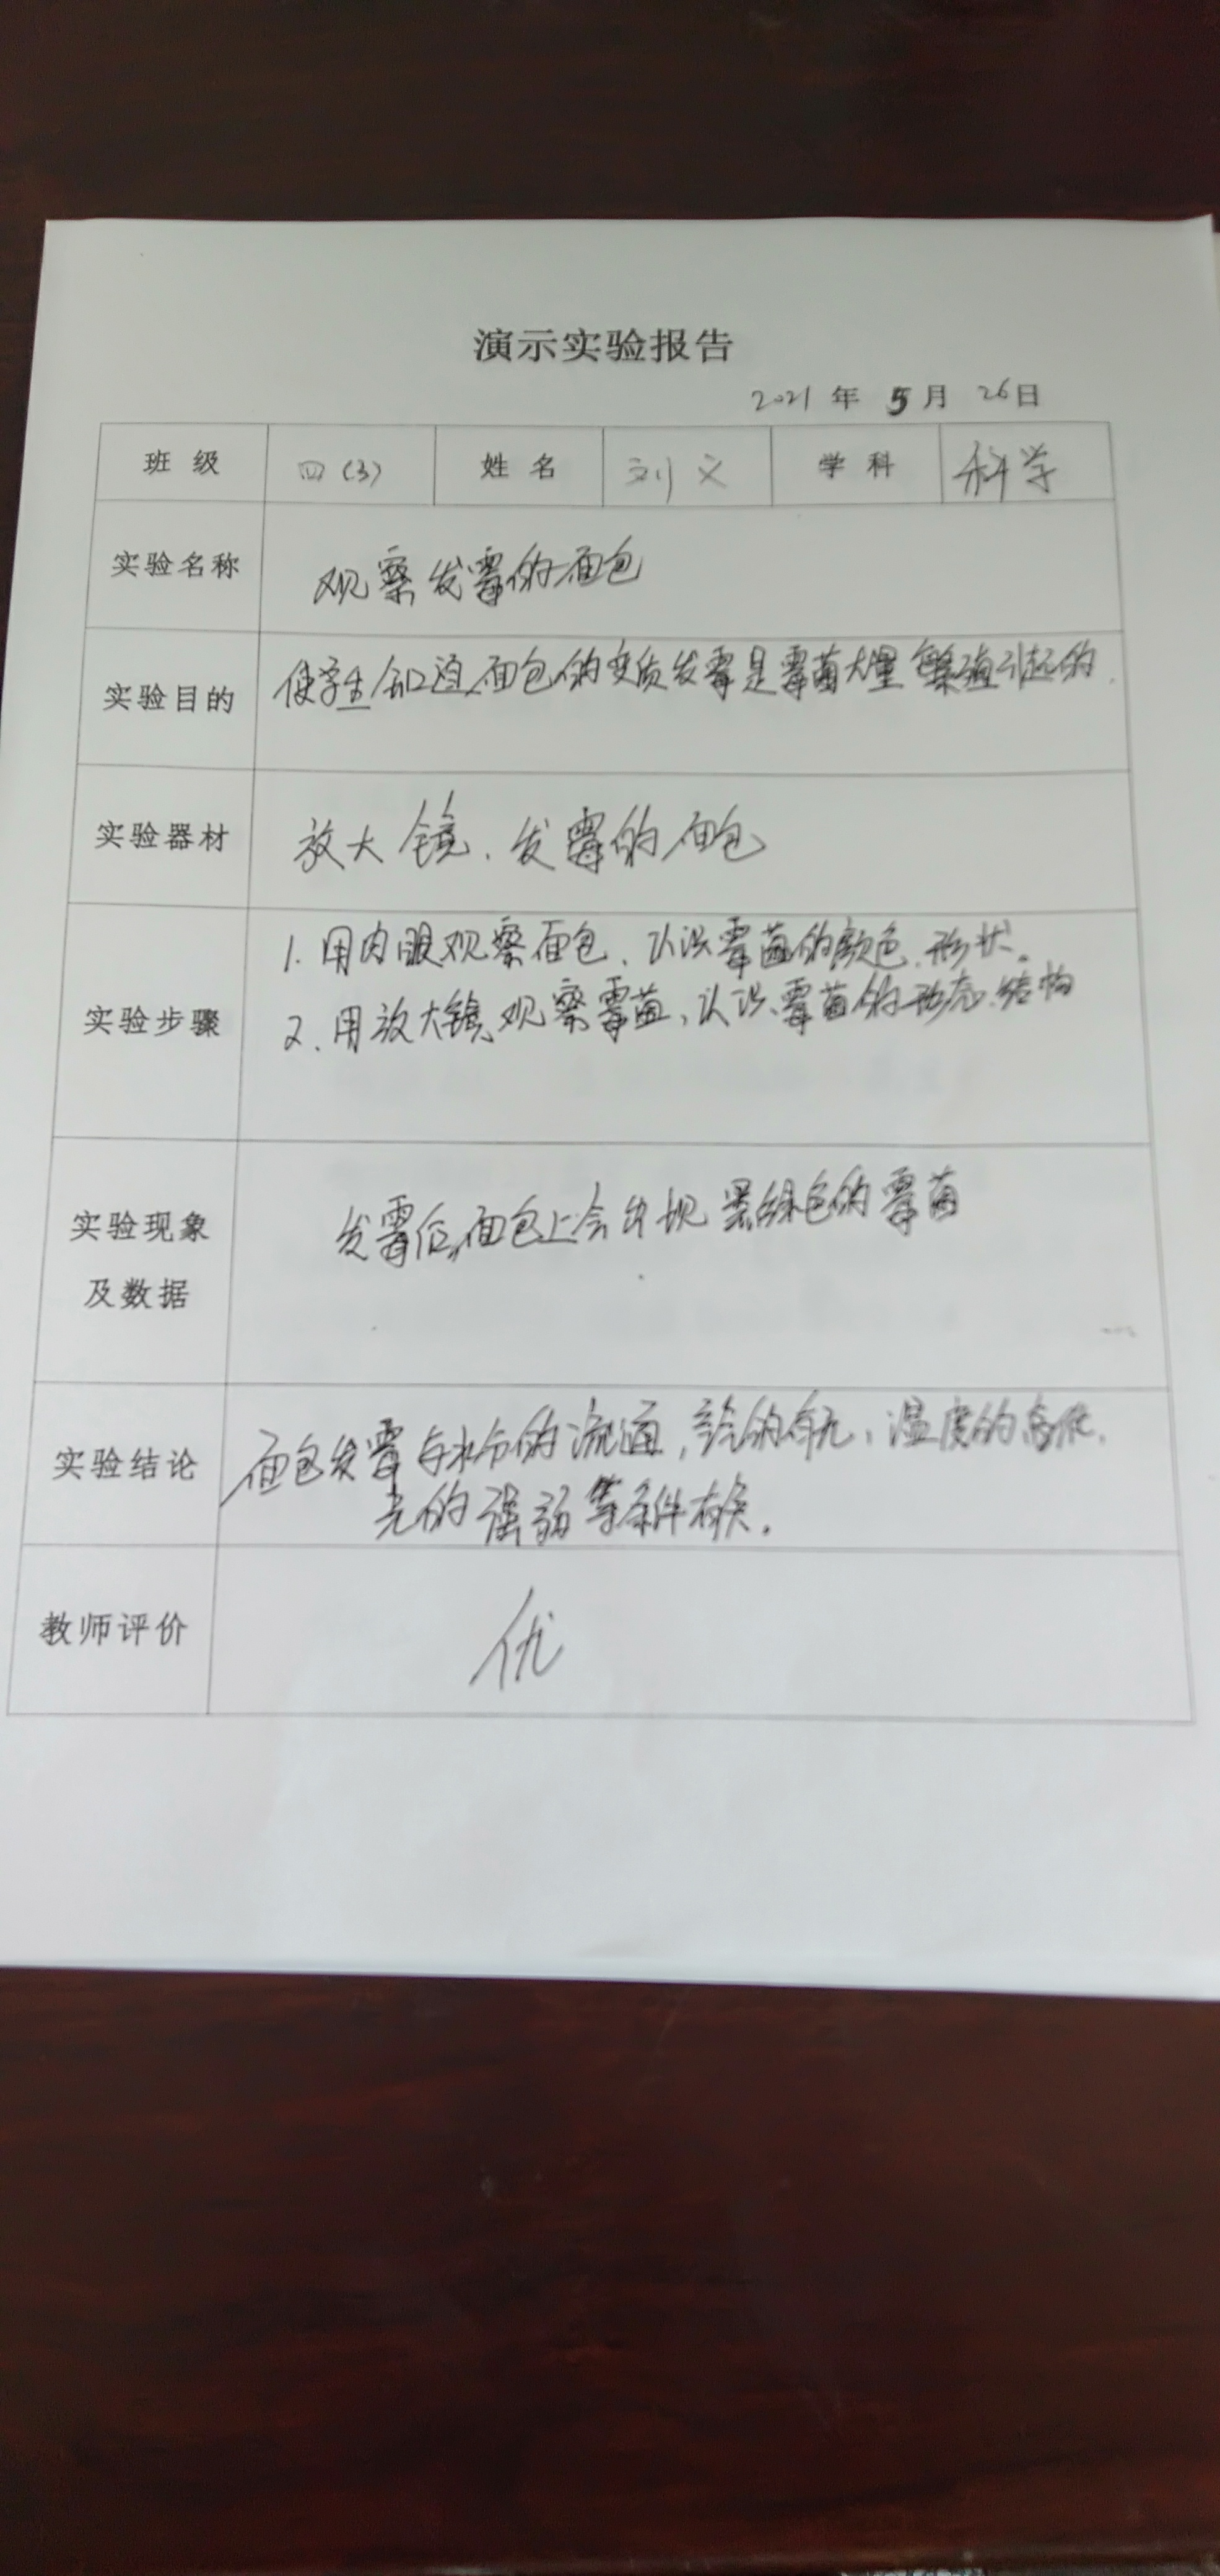 演示实验报告
2021 年 5 月 26 日
班级 四(3) 姓名 刘文 学科 科学
实验名称 观察发霉的面包
实验目的 使学生知道面包的变质发霉是霉菌大量繁殖引起的.
实验器材 放大镜、发霉的面包
实验步骤
1. 用肉眼观察面包、认识霉菌的颜色、形状。
2. 用放大镜观察霉菌、认识霉菌的形态、结构
实验现象
及数据
发霉后,面包上会出现黑绿色的霉菌
实验结论
面包发霉与水分的流通,空气的有无、温度的高低、
光的强弱等条件有关.
教师评价 优